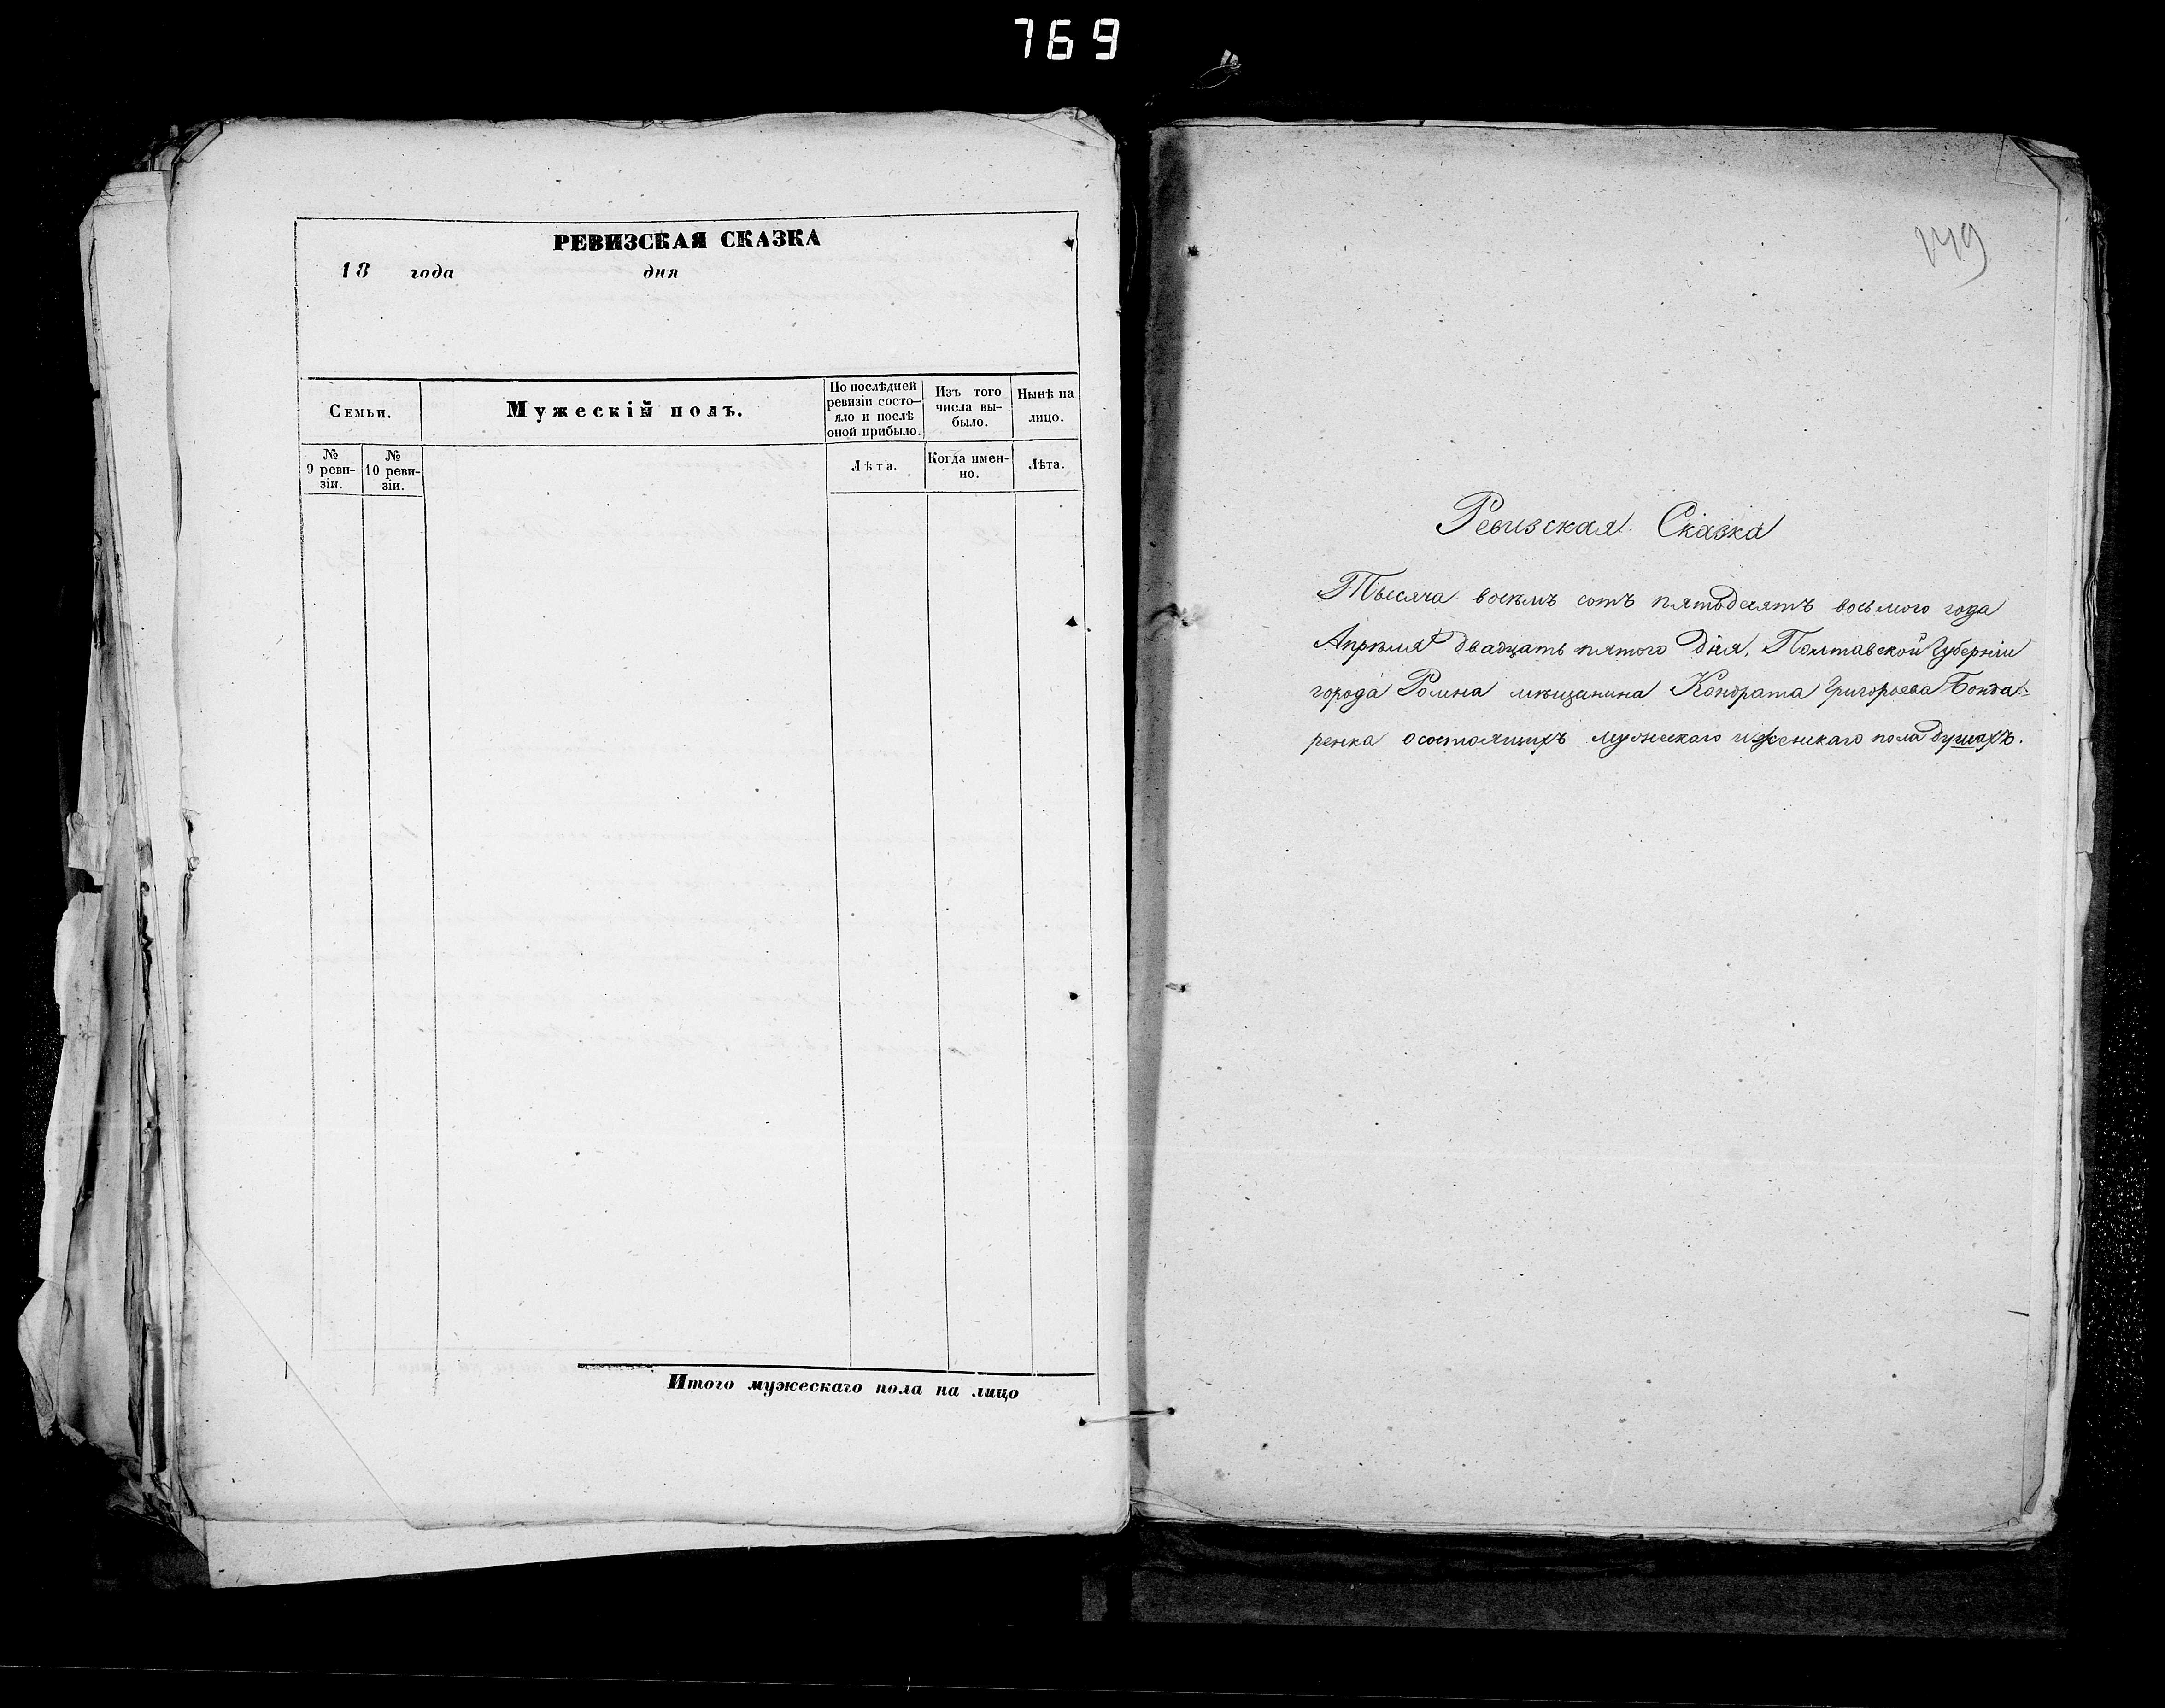 769
РЕВИЗСКАЯ СКАЗКА
18 года дня
Семьи.
Мужескій полъ.
По послѣдней ревизіи состо-яло и послѣ оной прибыло.
Изъ того числа вы-было.
Нынѣ на лицо.
№ 9 реви-зіи.
№ 10 реви-зіи.
Лѣта.
Когда имен-но.
Лѣта.
Итого мужескаго пола на лицо
149
Ревизская Сказка
Тысяча восѣмъ сотъ пятьдесятъ восьмого года
Апрѣля двадцать пятого дня, Полтавской Губерніи
города Ромна мѣщанина Кондрата Григорьева Бонда-
ренка о состоящихъ мужескаго и женскаго пола душахъ.